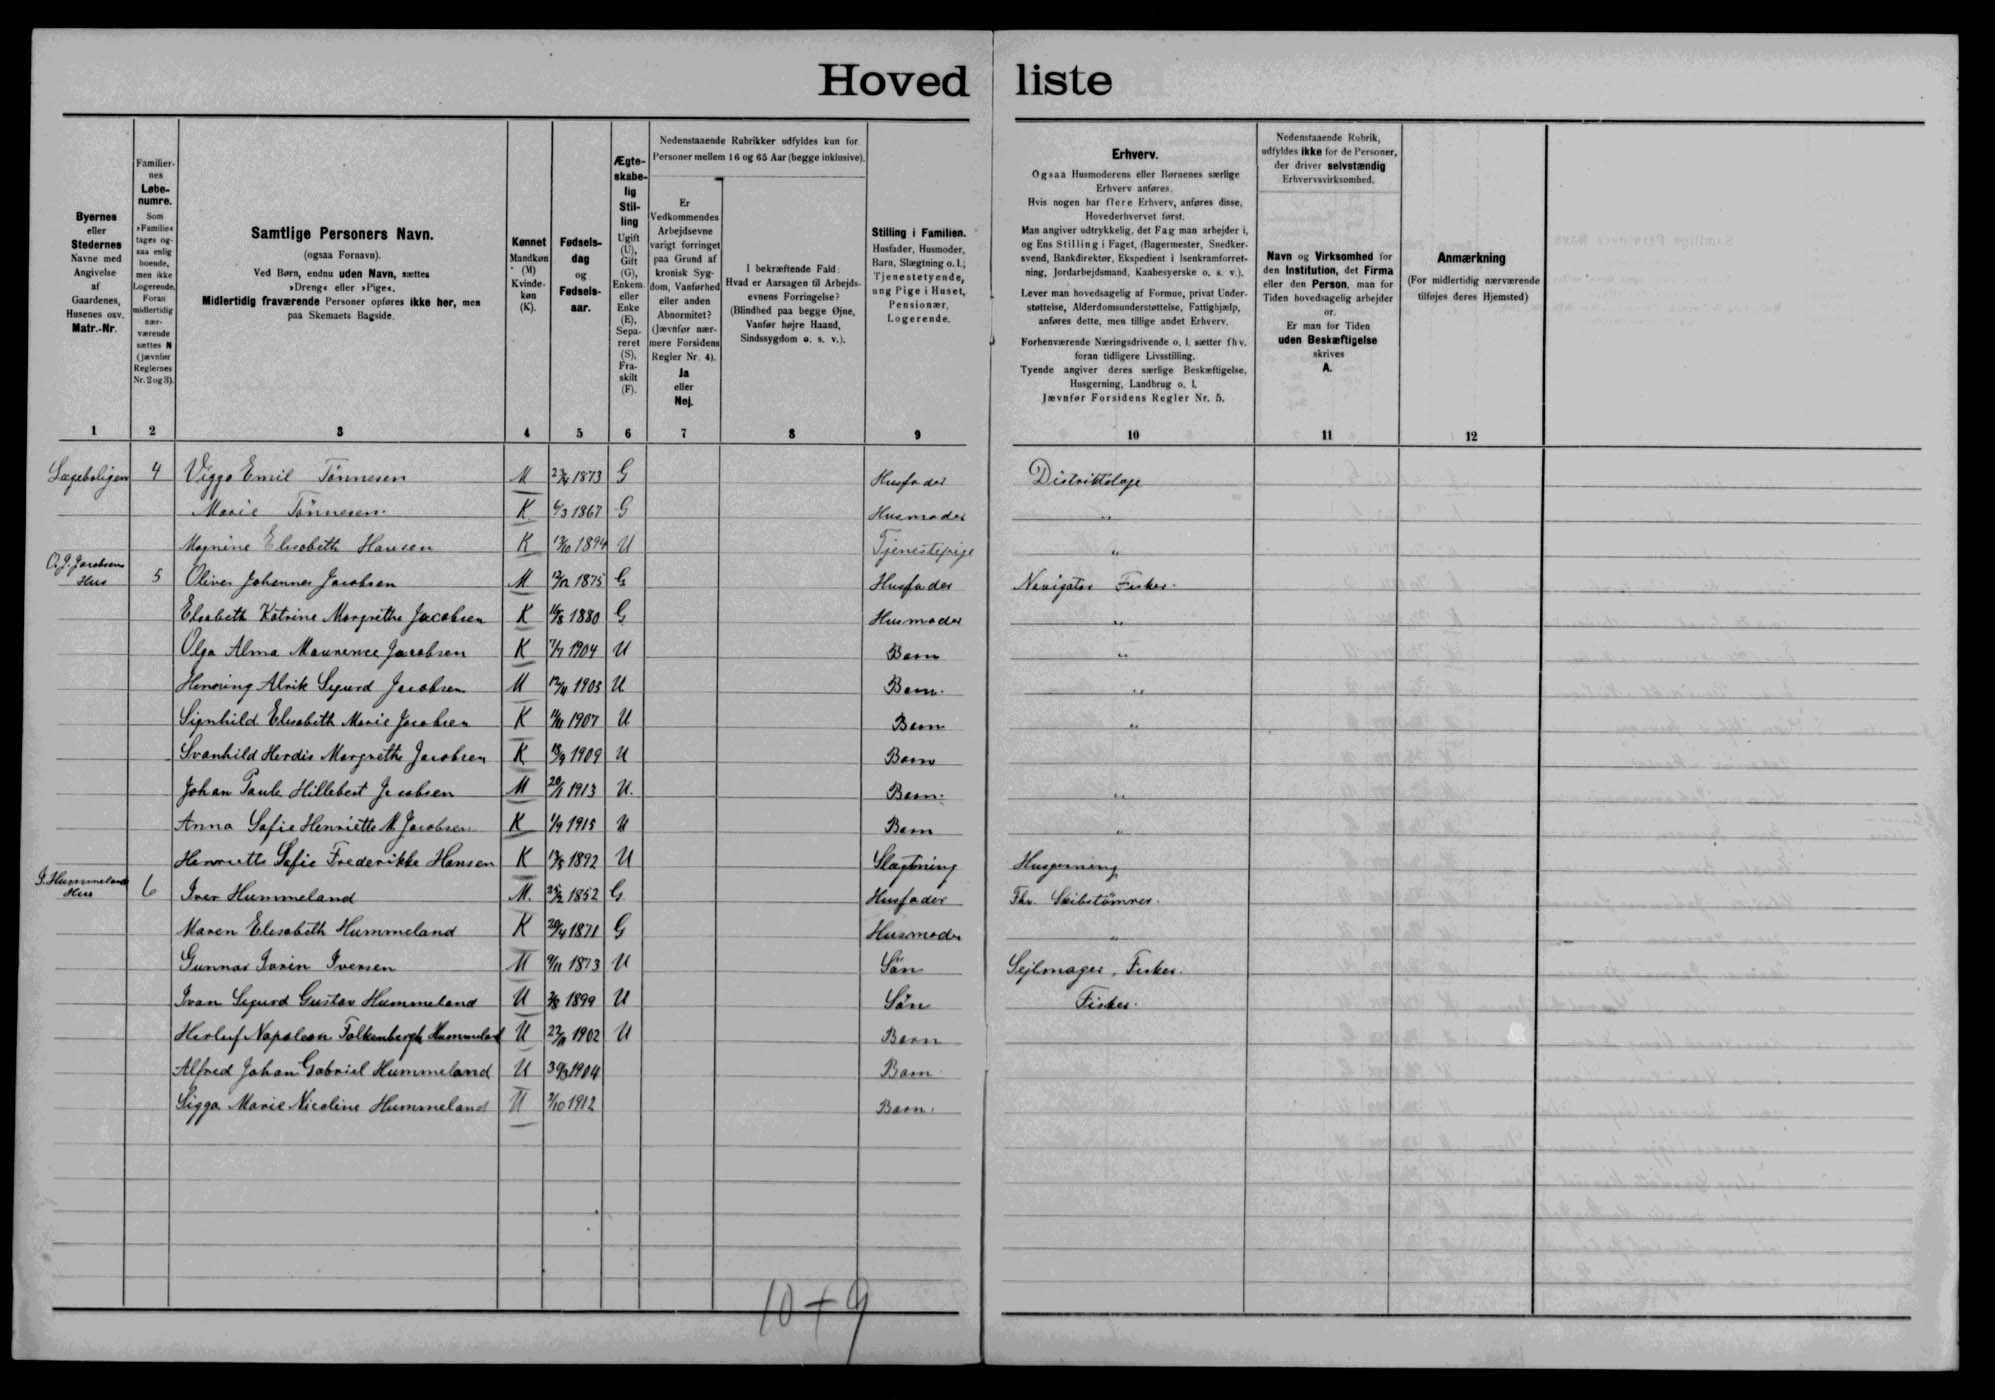 Hovedliste
Byernes eller Stedernes Navne med Angivelse af Gaardenes, Husenes osv. Matr.-Nr.
Familiernes Løbenumre. Som »Familie« tages ogsaa enlig boende, men ikke Logerende. Foran midlertidig nærværende sættes N (jævnfør Reglernes Nr. 2 og 3).
Samtlige Personers Navn.
(ogsaa Fornavn).
Ved Børn, endnu uden Navn, sættes »Dreng« eller »Pige«.
Midlertidig fraværende Personer opføres ikke her, men paa Skemaets Bagside.
Kønnet Mandkøn (M) Kvindekøn (K).
Fødselsdag og Fødselsaar.
Ægteskabelig Stilling Ugift (U), Gift (G), Enkem. eller Enke (E), Separeret (S), Fraskilt (F).
Nedenstaaende Rubrikker udfyldes kun for Personer mellem 16 og 65 Aar (begge inklusive).
Er Vedkommendes Arbejdsevne varigt forringet paa Grund af kronisk Sygdom, Vanførhed eller anden Abnormitet? (Jævnfør nærmere Forsidens Regler Nr. 4). Ja eller Nej.
I bekræftende Fald: Hvad er Aarsagen til Arbejdsevnens Forringelse? (Blindhed paa begge Øjne, Vanfør højre Haand, Sindssygdom o. s. v.).
Stilling i Familien. Husfader, Husmoder, Barn, Slægtning o. l.; Tjenestetyende, ung Pige i Huset, Pensionær, Logerende.
Erhverv.
Ogsaa Husmoderens eller Børnenes særlige Erhverv anføres.
Hvis nogen har flere Erhverv, anføres disse, Hovederhvervet først.
Man angiver udtrykkelig, det Fag man arbejder i, og Ens Stilling i Faget, (Bagermester, Snedkersvend, Bankdirektør, Ekspedient i Isenkramforretning, Jordarbejdsmand, Kaabesyerske o. s. v.).
Lever man hovedsagelig af Formue, privat Understøttelse, Alderdomsunderstøttelse, Fattighjælp, anføres dette, men tillige andet Erhverv.
Forhenværende Næringsdrivende o. l. sætter fhv. foran tidligere Livsstilling.
Tyende angiver deres særlige Beskæftigelse, Husgerning, Landbrug o. l.
Jævnfør Forsidens Regler Nr. 5.
Nedenstaaende Rubrik, udfyldes ikke for de Personer, der driver selvstændig Erhvervsvirksomhed.
Navn og Virksomhed for den Institution, det Firma eller den Person, man for Tiden hovedsagelig arbejder for.
Er man for Tiden uden Beskæftigelse skrives A.
Anmærkning
(For midlertidig nærværende tilføjes deres Hjemsted)
1 2 3 4 5 6 7 8 9 10 11 12
Lægeboligen 4 Viggo Emil Tönnesen M 23/4 1873 G Husfader Distriktslæge
Marie Tönnesen K 6/3 1867 G Husmoder "
Magnine Elisabeth Hansen K 1894 U Tjenestepige "
O. J. Jacobsens Hus 5 Oliver Johannes Jacobsen M 1875 G Husfader Navigatør Fisker.
Elsabeth Katrine Margrethe Jacobsen K 1880 G Husmoder "
Olga Alma Jacobsen K 1904 U Barn "
Henning Alrik Sigurd Jacobsen M 1905 U Barn. "
Signhild Elisabeth Marie Jacobsen K 1907 U Barn "
Svanhild Herdis Margrethe Jacobsen K 1909 U Barn
Johan Paule Hillebert Jacobsen M 1913 U. Barn. "
Anna Sofie Henriette M Jacobsen K 1/9 1915 U Barn "
Henriette Sofie Frederikke Hansen K 1892 U Slægtning Husgerning
I. Hummelands Hus 6 Iver Hummeland M. 1852 G. Husfader Fhv. Skibstömrer.
Maren Elisabeth Hummeland K 20/4 1871 G Husmoder "
Gunnar Iverin Iversen M 1873 U Sön Sejlmager, Fisker.
Ivan Sigurd Gustav Hummeland U 1899 U Sön Fisker.
Herluf Napoleon Falkenbergh Hummeland U 1902 U Barn
Alfred Johan Gabriel Hummeland U 1904 Barn
Sigga Marie Nicoline Hummeland U 1912 Barn.
10+9